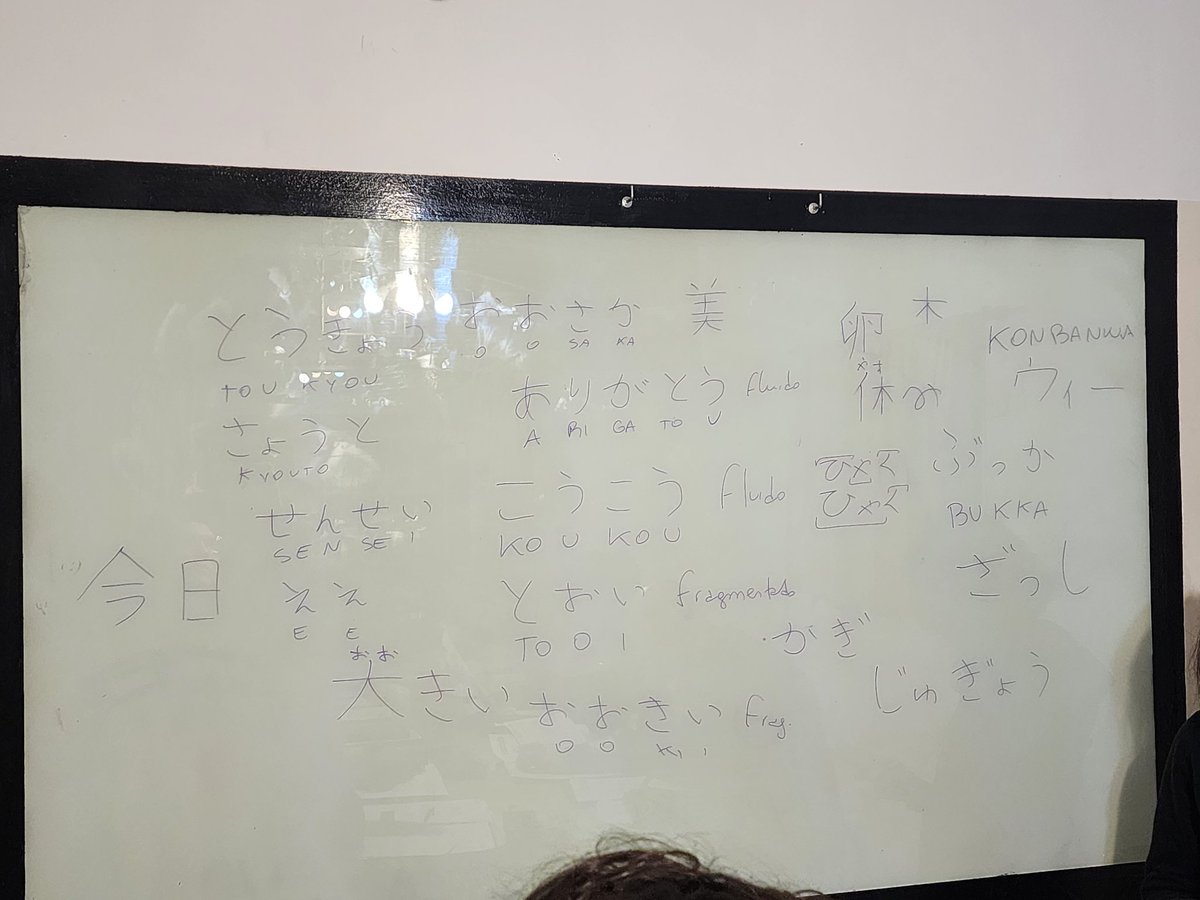 とうきょう
TOU KYOU
おおさか
O O SA KA
美
卵
木
KONBANWA
ありがとう fluido
A RI GA TO U
やす
休み
ウィー
きょうと
KYOUTO
せんせい
SEN SE I
こうこう fluido
KO U KO U
ひゃく
ひゃく
ぶっか
BUKKA
今日
ええ
E E
とおい fragmentado
TO O I
かぎ
ざっし
おお
大きい
おおきい frag.
O O KI I
じゅぎょう